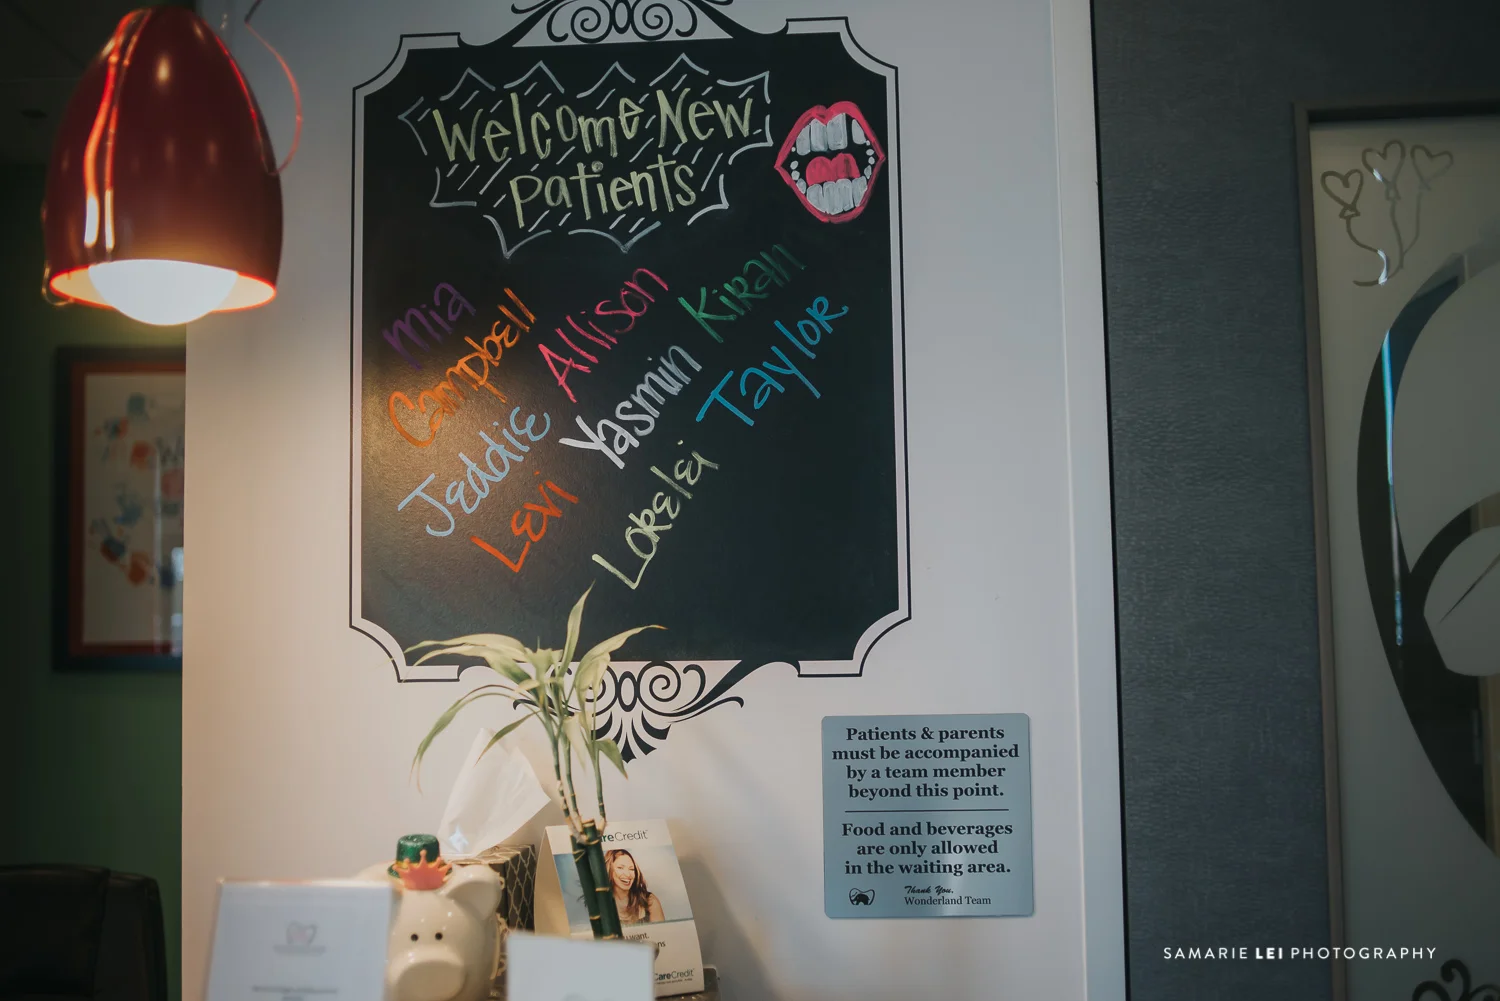 Welcome New
Patients
Mia
Campbell
Allison
Kiran
Jeddie
Yasmin
Taylor
Levi
Lorelei
Patients & parents
must be accompanied
by a team member
beyond this point.
Food and beverages
are only allowed
in the waiting area.
Thank You,
Wonderland Team
reCredit
CareCredit
SAMARIE LEI PHOTOGRAPHY